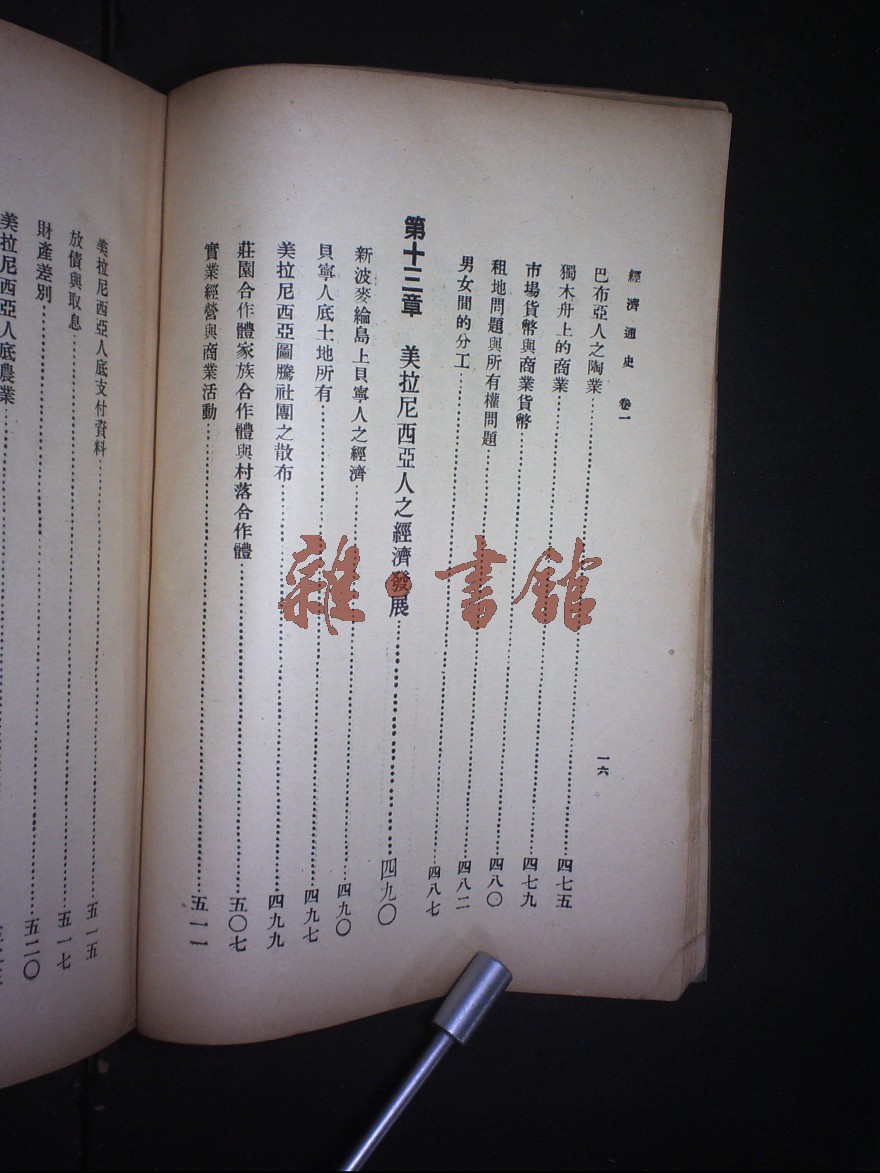 經濟通史 卷一 一六
巴布亞人之陶業……四七五
獨木舟上的商業……四七九
市場貨幣與商業貨幣……四八〇
租地問題與所有權問題……四八二
男女間的分工……四八七
第十三章 美拉尼西亞人之經濟發展……四九〇
新波麥綸島上貝寧人之經濟……四九〇
貝寧人底土地所有……四九七
美拉尼西亞圖騰社團之散布……四九九
莊園合作體家族合作體與村落合作體……五〇七
實業經營與商業活動……五一一
美拉尼西亞人底支付資料……五一五
放債與取息……五一七
財產差別……五二〇
美拉尼西亞人底農業……
雜·書館